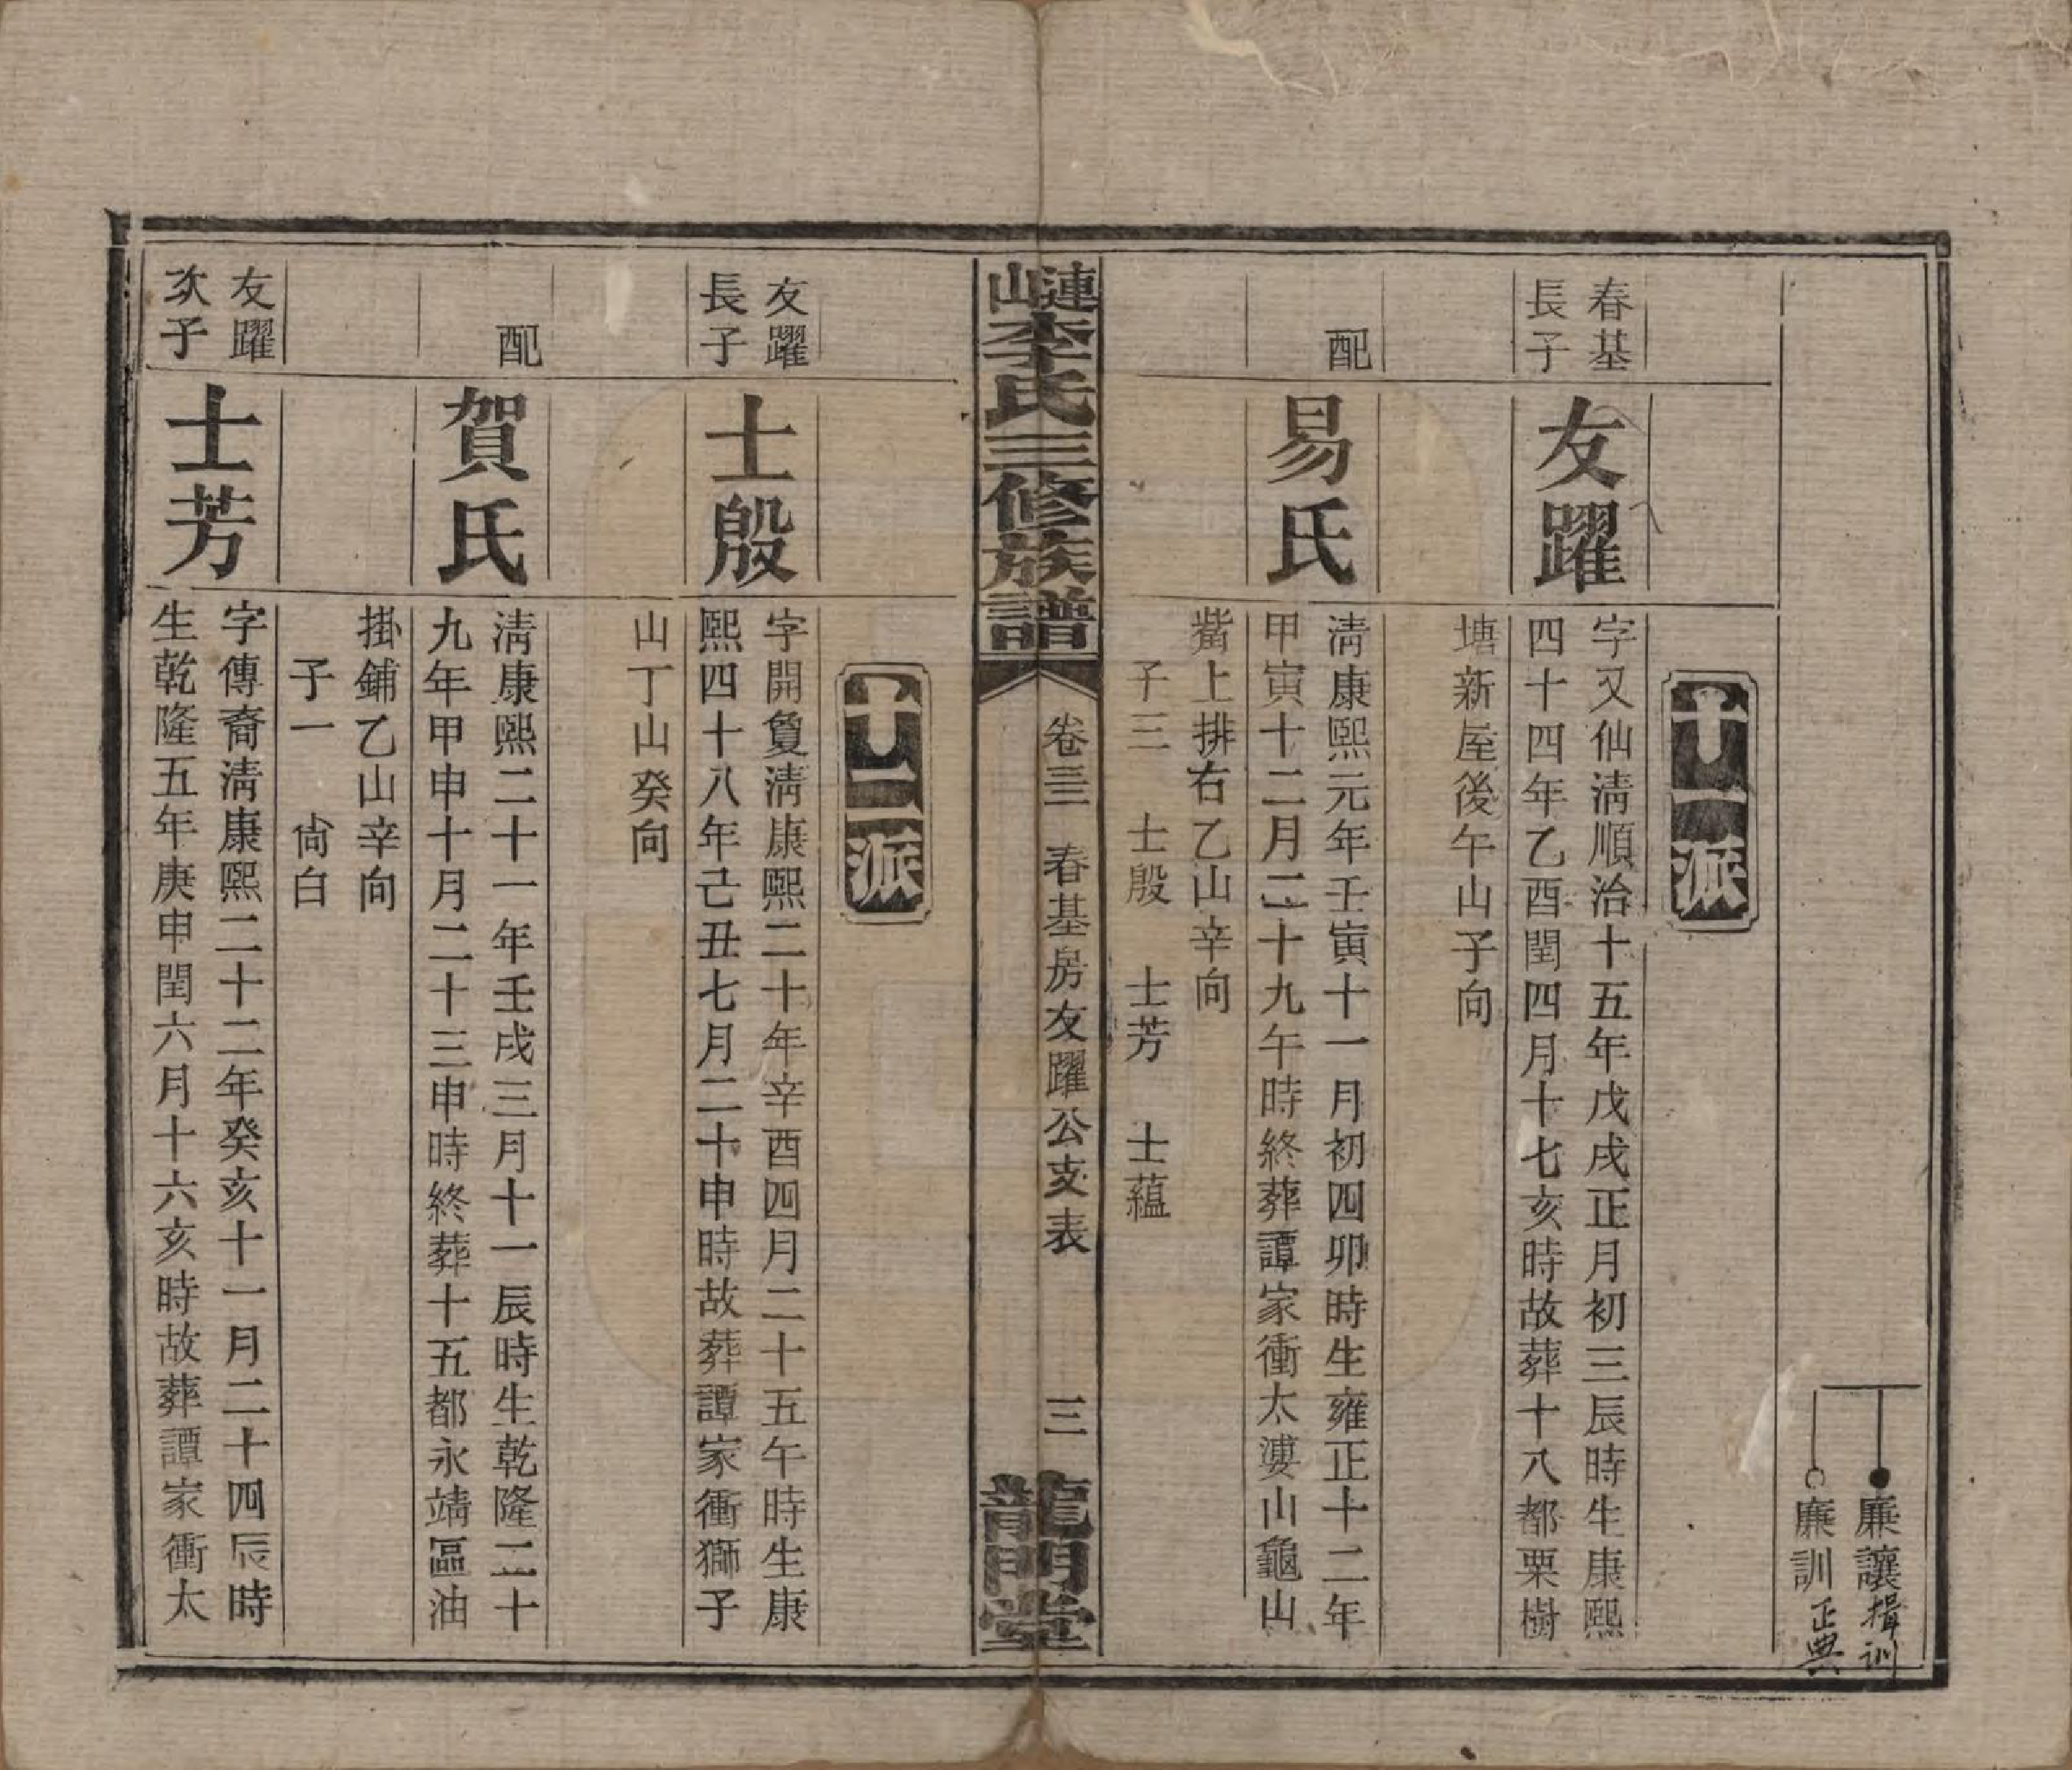 廉讓揖训
廉訓正典
十一派
春基
長子
友躍
字又仙淸順治十五年戊戌正月初三辰時生康熙
四十四年乙酉閏四月十七亥時故葬十八都栗樹
塘新屋後午山子向
配
易氏
淸康熙元年壬寅十一月初四卯時生雍正十二年
甲寅十二月二十九午時終葬譚家衝太漊山龜山
觜上排右乙山辛向
子三　士殷　士芳　士蘊
漣山李氏三修族譜
卷三　春基房友躍公支表
三
龍門堂
十二派
友躍
長子
士殷
字開敻淸康熙二十年辛酉四月二十五午時生康
熙四十八年己丑七月二十申時故葬譚家衝獅子
山丁山癸向
配
賀氏
淸康熙二十一年壬戌三月十一辰時生乾隆二十
九年甲申十月二十三申時終葬十五都永靖區油
掛鋪乙山辛向
子一　尙白
友躍
次子
士芳
字傳裔淸康熙二十二年癸亥十一月二十四辰時
生乾隆五年庚申閏六月十六亥時故葬譚家衝太